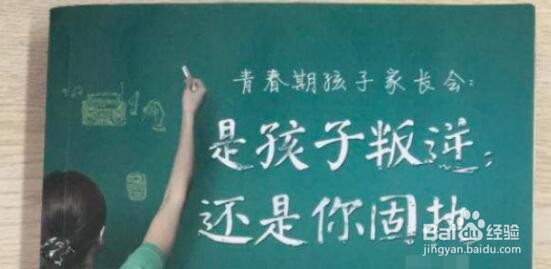 青春期孩子家长会:
是孩子叛逆;
还是你固执
Baidu经验
jingyan.baidu.com